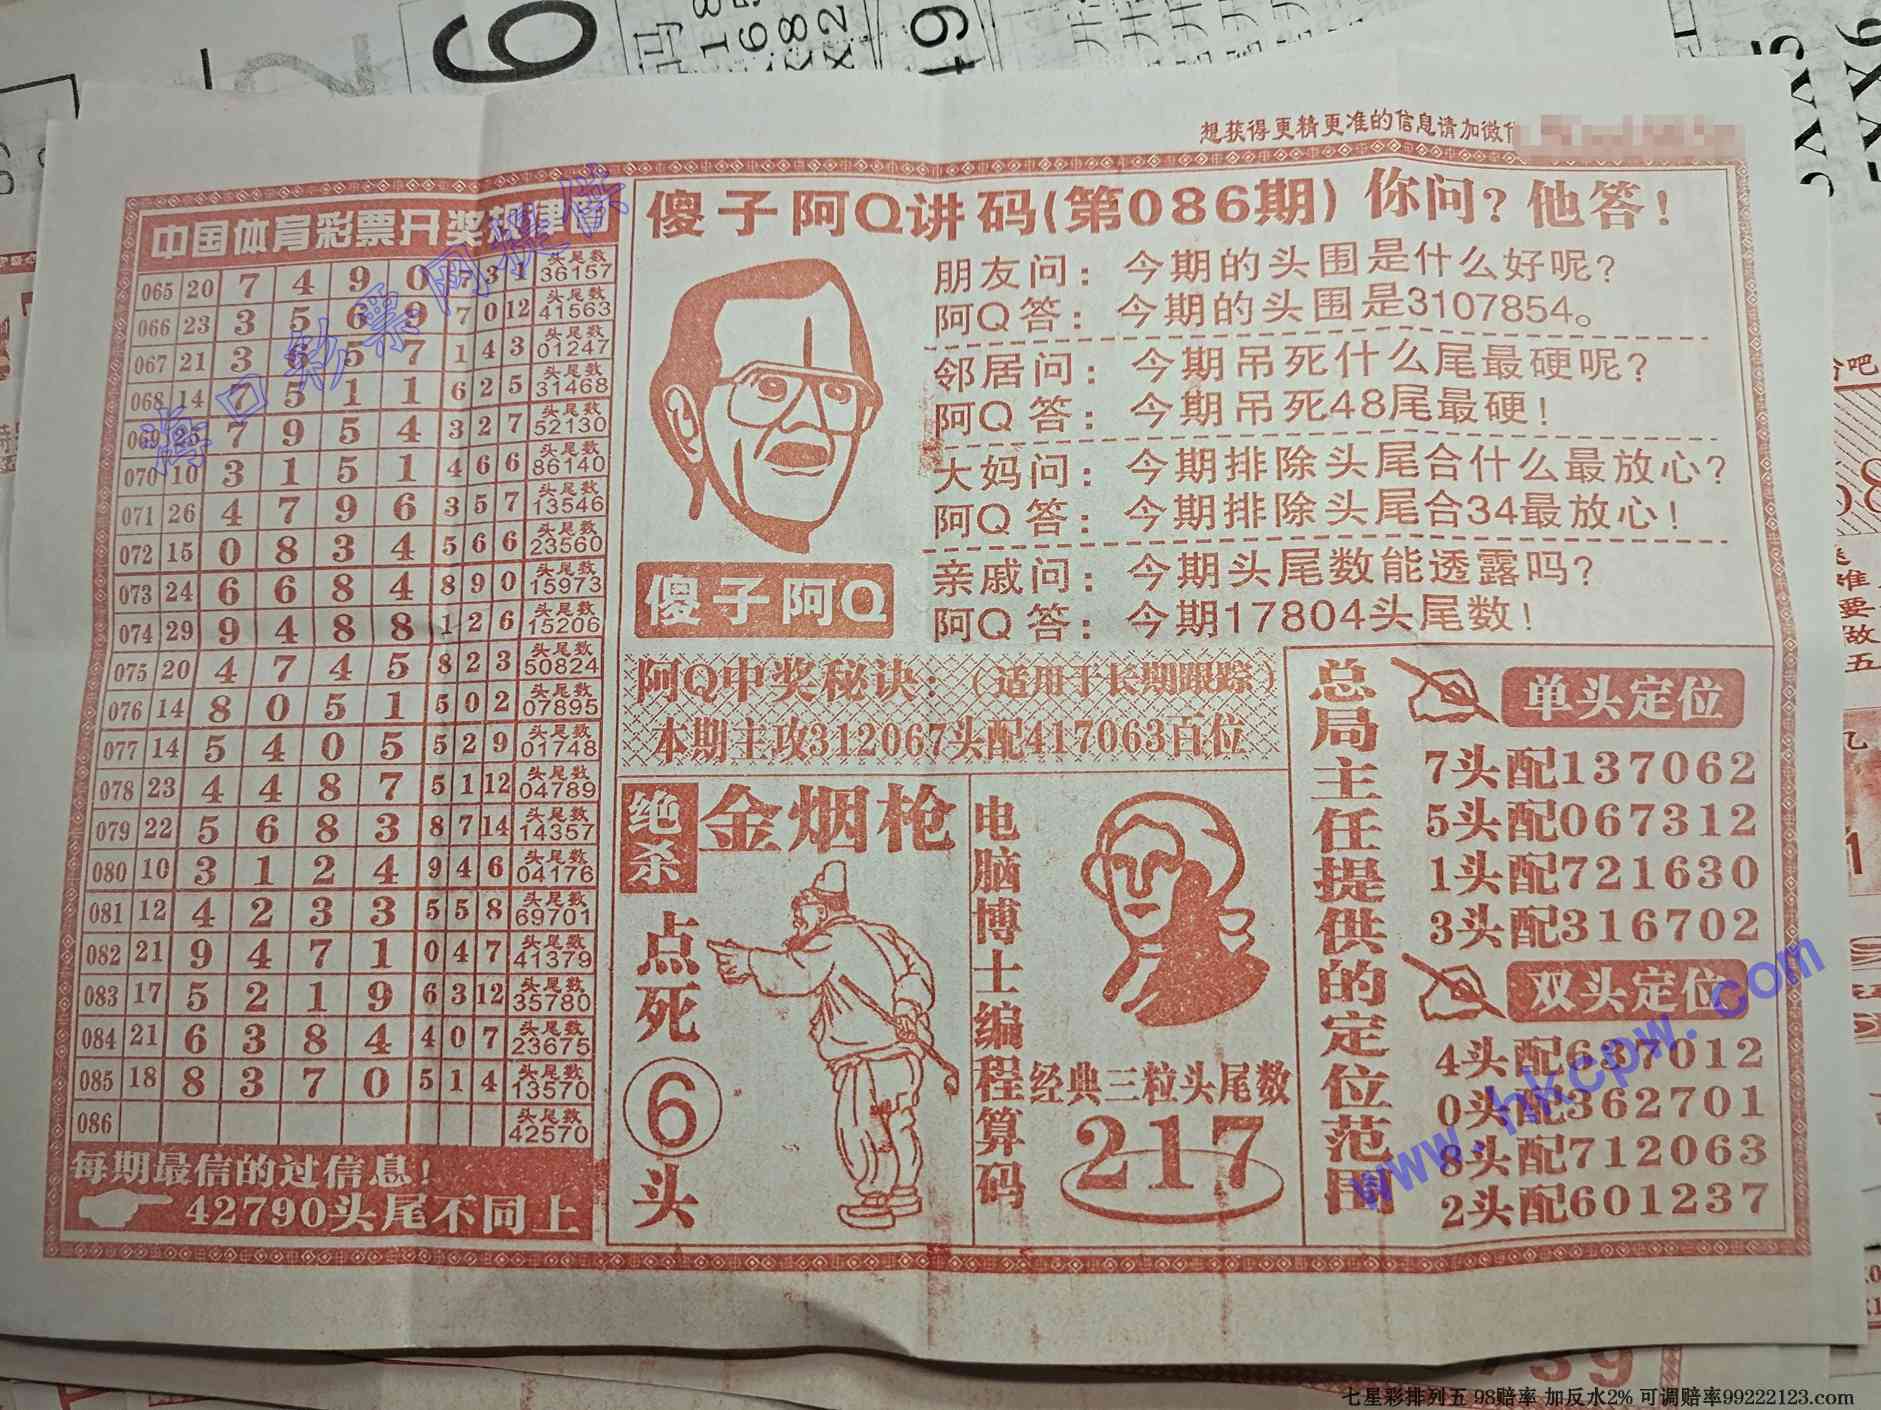 想获得更精更准的信息请加微信
中国体育彩票开奖规律图
065 20 7 4 9 0 7 3 1 头尾数 36157
066 23 3 5 6 9 7 0 12 头尾数 41563
067 21 3 6 5 7 1 4 3 头尾数 01247
068 14 7 5 1 1 6 2 5 头尾数 31468
069 25 7 9 5 4 3 2 7 头尾数 52130
070 10 3 1 5 1 4 6 6 头尾数 86140
071 26 4 7 9 6 3 5 7 头尾数 13546
072 15 0 8 3 4 5 6 6 头尾数 23560
073 24 6 6 8 4 8 9 0 头尾数 15973
074 29 9 4 8 8 1 2 6 头尾数 15206
075 20 4 7 4 5 8 2 3 头尾数 50824
076 14 8 0 5 1 5 0 2 头尾数 07895
077 14 5 4 0 5 5 2 9 头尾数 01748
078 23 4 4 8 7 5 1 12 头尾数 04789
079 22 5 6 8 3 8 7 14 头尾数 14357
080 10 3 1 2 4 9 4 6 头尾数 04176
081 12 4 2 3 3 5 5 8 头尾数 69701
082 21 9 4 7 1 0 4 7 头尾数 41379
083 17 5 2 1 9 6 3 12 头尾数 35780
084 21 6 3 8 4 4 0 7 头尾数 23675
085 18 8 3 7 0 5 1 4 头尾数 13570
086 头尾数 42570
每期最信的过信息！
42790头尾不同上
傻子阿Q讲码(第086期) 你问？他答！
朋友问：今期的头围是什么好呢？
阿Q答：今期的头围是3107854。
邻居问：今期吊死什么尾最硬呢？
阿Q答：今期吊死48尾最硬！
大妈问：今期排除头尾合什么最放心？
阿Q答：今期排除头尾合34最放心！
亲戚问：今期头尾数能透露吗？
阿Q答：今期17804头尾数！
傻子阿Q
阿Q中奖秘诀：（适用于长期跟踪）
本期主攻312067头配417063百位
绝杀
金烟枪
点死⑥头
电脑博士编程算码
经典三粒头尾数
217
总局主任提供的定位范围
单头定位
7头配137062
5头配067312
1头配721630
3头配316702
双头定位
4头配637012
0头配362701
8头配712063
2头配601237
海口彩票网提供
www.hkcpw.com
七星彩排列五 98赔率 加反水2% 可调赔率99222123.com